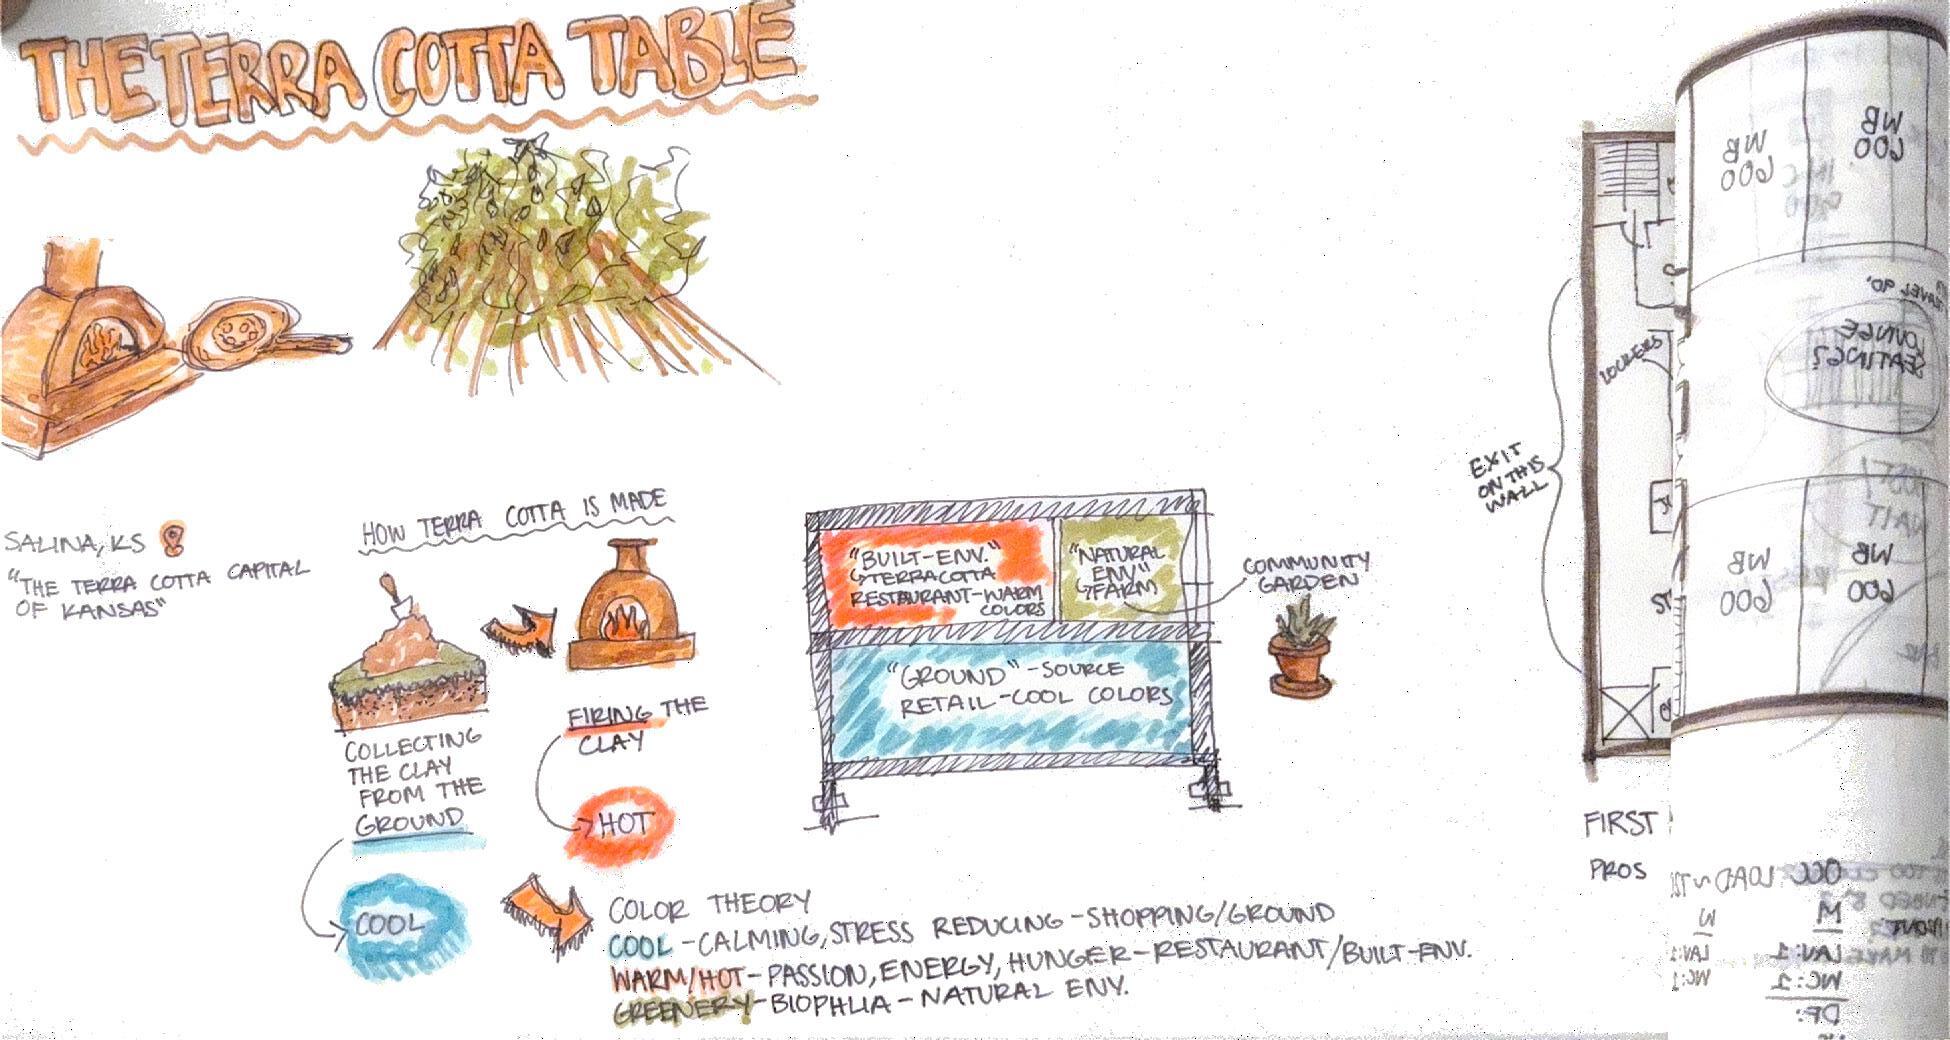 THE TERRA COTTA TABLE
SALINA, KS
"THE TERRA COTTA CAPITAL
OF KANSAS"
HOW TERRA COTTA IS MADE
COLLECTING
THE CLAY
FROM THE
GROUND
COOL
FIRING THE
CLAY
HOT
"BUILT-ENV."
TERRACOTTA
RESTAURANT-WARM
COLORS
"NATURAL
ENV"
FARM
COMMUNITY
GARDEN
"GROUND"-SOURCE
RETAIL-COOL COLORS
COLOR THEORY
COOL-CALMING, STRESS REDUCING-SHOPPING/GROUND
WARM/HOT-PASSION, ENERGY, HUNGER-RESTAURANT/BUILT-ENV.
GREENERY-BIOPHLIA-NATURAL ENV.
EXIT
ON THIS
WALL
LOCKERS
FIRST
PROS
WB
600
WB
600
LOUNGE
SEATING?
WAIT
WB
600
WB
600
OCC LOAD
M
W
LAV:1
LAV:1
WC:2
WC:1
DF: